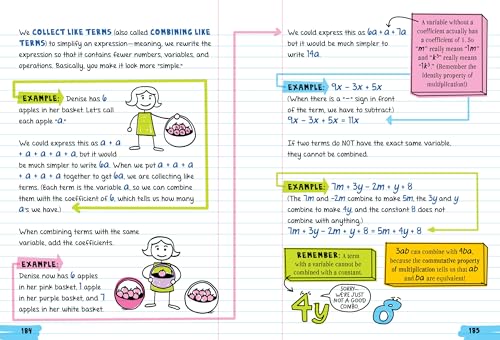 We COLLECT LIKE TERMS (also called COMBINING LIKE
TERMS) to simplify an expression—meaning, we rewrite
the expression so that it contains fewer numbers, variables, and
operations. Basically, you make it look more "simple."
EXAMPLE: Denise has 6
apples in her basket. Let's call
each apple "a."
We could express this as a + a
+ a + a + a + a, but it would
be much simpler to write 6a. When we put a + a + a
+ a + a + a together to get 6a, we are collecting like
terms. (Each term is the variable a, so we can combine
them with the coefficient of 6, which tells us how many
a's we have.)
When combining terms with the same
variable, add the coefficients.
EXAMPLE:
Denise now has 6 apples
in her pink basket, 1 apple
in her purple basket, and 7
apples in her white basket.
184
We could express this as 6a + a + 7a
but it would be much simpler to
write 14a.
A variable without a
coefficient actually has
a coefficient of 1. So
"m" really means "1m"
and "k³" really means
"1k³." (Remember the
identity property of
multiplication!)
EXAMPLE: 9x - 3x + 5x
(When there is a "-" sign in front
of the term, we have to subtract.)
9x - 3x + 5x = 11x
If two terms do NOT have the exact same variable,
they cannot be combined.
EXAMPLE: 7m + 3y - 2m + y + 8
(The 7m and -2m combine to make 5m, the 3y and y
combine to make 4y, and the constant 8 does not
combine with anything.)
7m + 3y - 2m + y + 8 = 5m + 4y + 8
REMEMBER: A term
with a variable cannot be
combined with a constant.
3ab can combine with 4ba,
because the commutative property
of multiplication tells us that ab
and ba are equivalent!
4y
SORRY—
WE'RE JUST
NOT A GOOD
COMBO.
8
185